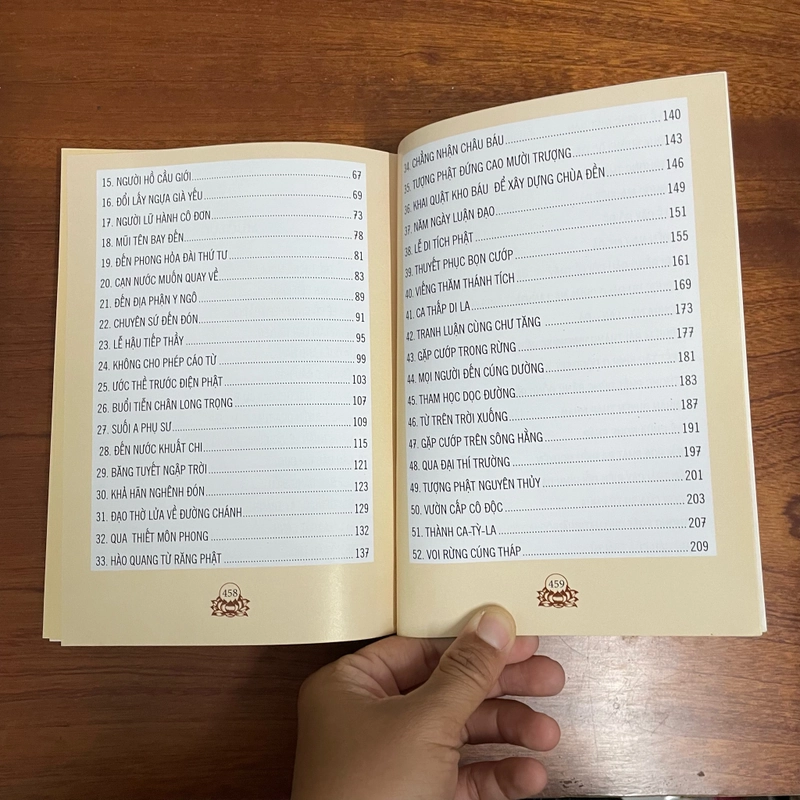 15. NGƯỜI HỒ CẦU GIỚI 67
16. ĐỔI LẤY NGỰA GIÀ YẾU 69
17. NGƯỜI LỮ HÀNH CÔ ĐƠN 73
18. MŨI TÊN BAY ĐẾN 78
19. ĐẾN PHONG HỎA ĐÀI THỨ TƯ 81
20. CẠN NƯỚC MUỐN QUAY VỀ 83
21. ĐẾN ĐỊA PHẬN Y NGÔ 89
22. CHUYÊN SỨ ĐẾN ĐÓN 91
23. LỄ HẬU TIẾP THẦY 95
24. KHÔNG CHO PHÉP CÁO TỪ 99
25. ƯỚC THỀ TRƯỚC ĐIỆN PHẬT 103
26. BUỔI TIỄN CHÂN LONG TRỌNG 107
27. SUỐI A PHỤ SƯ 109
28. ĐẾN NƯỚC KHUẤT CHI 115
29. BĂNG TUYẾT NGẬP TRỜI 121
30. KHẢ HÃN NGHÊNH ĐÓN 123
31. ĐẠO THỜ LỬA VỀ ĐƯỜNG CHÁNH 129
32. QUA THIẾT MÔN PHONG 132
33. HÀO QUANG TỪ RĂNG PHẬT 137
458
34. CHẲNG NHẬN CHÂU BÁU 140
35. TƯỢNG PHẬT ĐỨNG CAO MƯỜI TRƯỢNG 143
36. KHAI QUẬT KHO BÁU ĐỂ XÂY DỰNG CHÙA ĐỀN 146
37. NĂM NGÀY LUẬN ĐẠO 149
38. LỄ DI TÍCH PHẬT 151
39. THUYẾT PHỤC BỌN CƯỚP 155
40. VIẾNG THĂM THÁNH TÍCH 161
41. CA THẤP DI LA 169
42. TRANH LUẬN CÙNG CHƯ TĂNG 173
43. GẶP CƯỚP TRONG RỪNG 177
44. MỌI NGƯỜI ĐẾN CÚNG DƯỜNG 181
45. THAM HỌC DỌC ĐƯỜNG 183
46. TỪ TRÊN TRỜI XUỐNG 187
47. GẶP CƯỚP TRÊN SÔNG HẰNG 191
48. QUA ĐẠI THÍ TRƯỜNG 197
49. TƯỢNG PHẬT NGUYÊN THỦY 201
50. VƯỜN CẤP CÔ ĐỘC 203
51. THÀNH CA-TỲ-LA 207
52. VOI RỪNG CÚNG THÁP 209
459